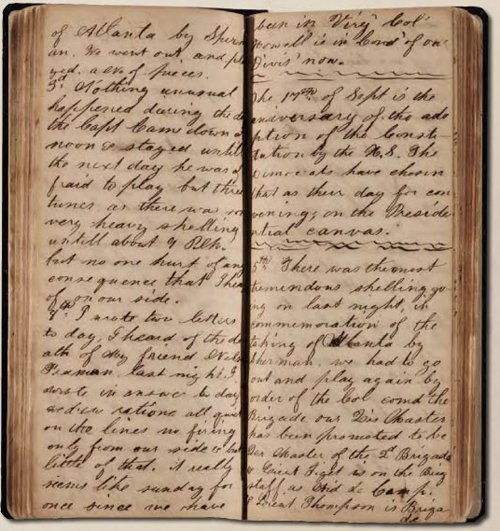 of Atlanta by Sherm
an. We went out and pla
yed. a No of pieces.
3d Nothing unusual
happened during the da
the Capt Came down a
noon & stayed until
the next day he was a
fraid to play but three
tunes as there was
very heavy shelling
untill about 9 Oclk.
but no one hurt of any
consequence that I hea
of on our side.
I wrote two letters
to day, I heard of the de
ath of my friend
last night. I
wrote in answer to day
we drew rations all quiet
on the lines no firing
only from our side & but
little of that. it really
seems like sunday for
once since we have
been in Virg Col
Howell is in Comd of our
Divis now.
The 17th of Sept is the
aniversary of the ado
ption of the Consti
tution by the U.S. The
Democrats have chosen
that as their day for con
vening; on the Preside
ntial canvas.
5th There was the most
tremendous shelling go
ing on last night, in
commemoration of the
taking of Atlanta by
Sherman. we had to go
out and play again by
order of the Col comd the
Brigade our Qr Master
has been promoted to be
Qr Master of the 2d Brigade
& Lieut is on the Brig
staff. as Aid de Camp.
& Lieut Thompson is Briga
de